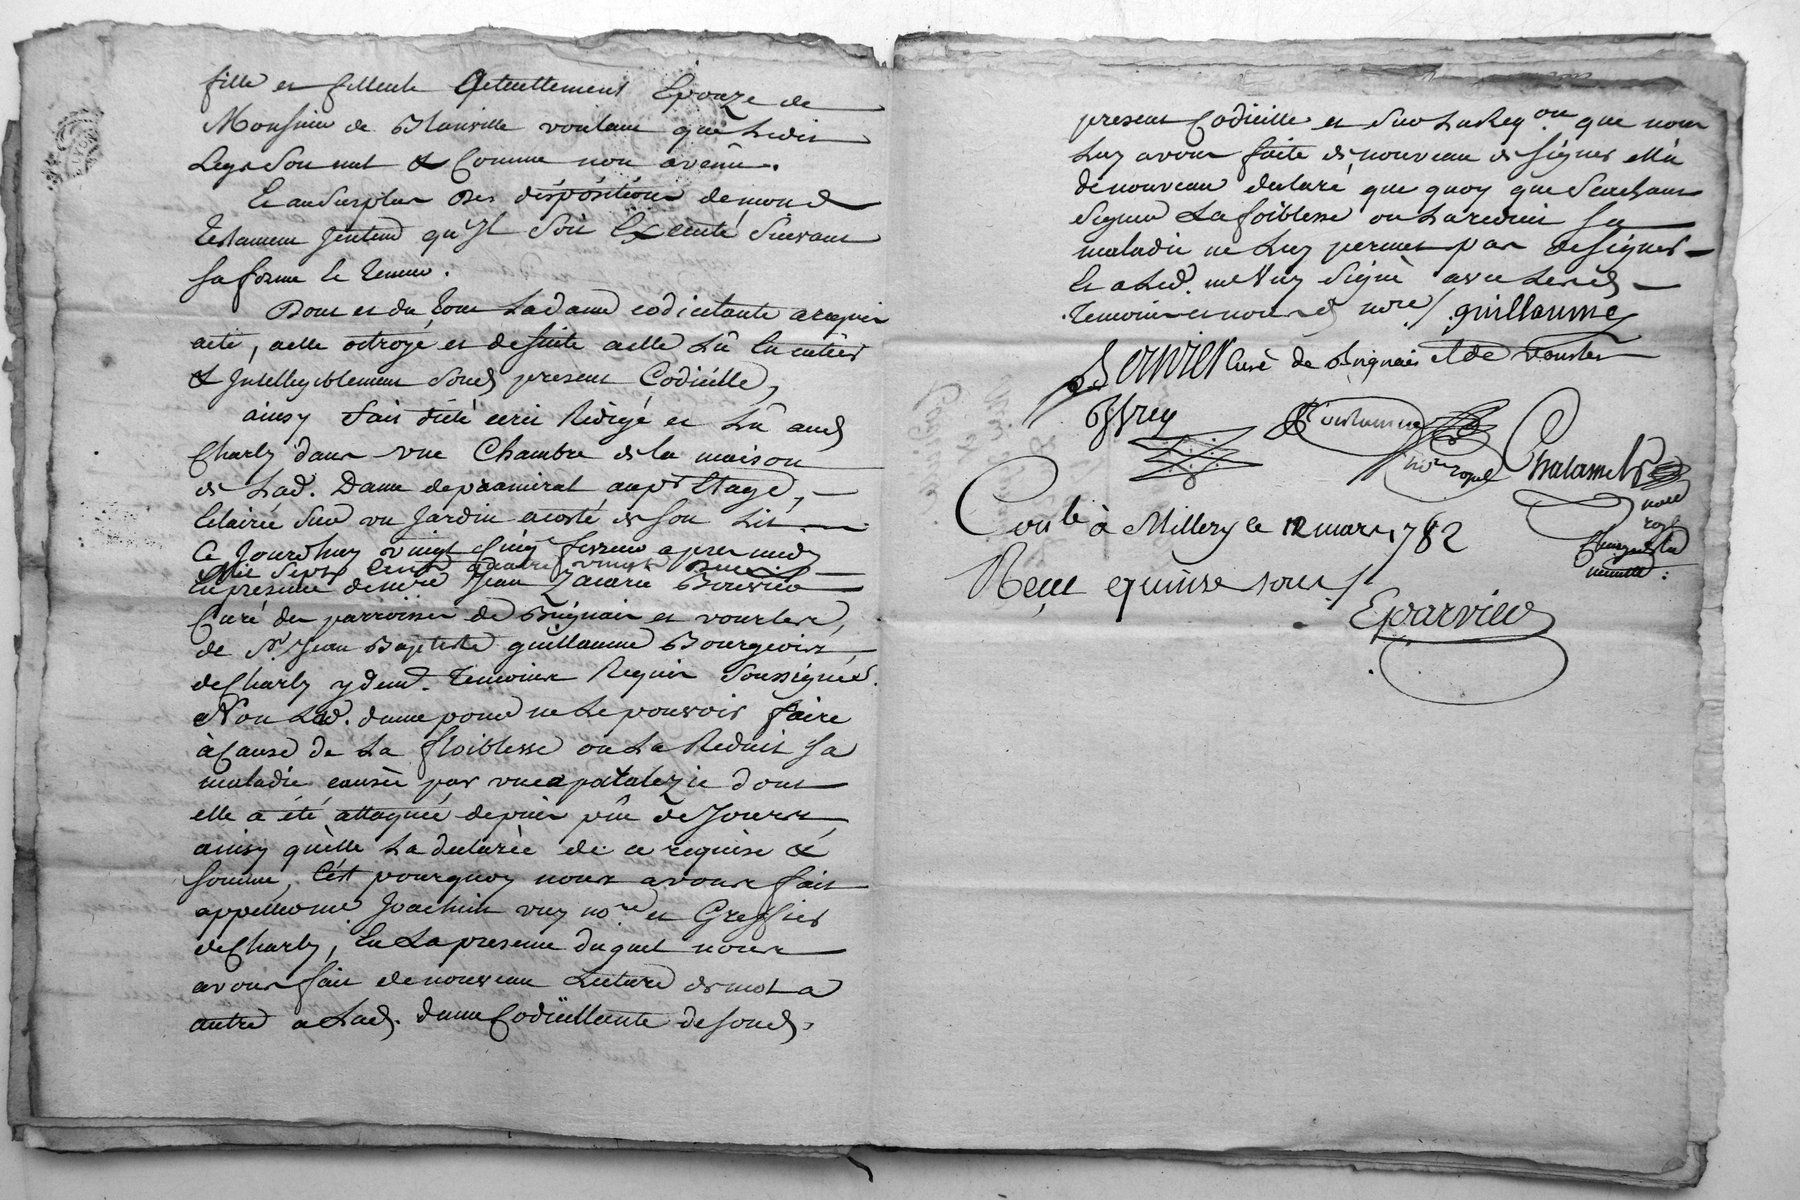 fille et filleule actuellement Epouze de
Monsieur de Blainville voulant que Ledit
Legs soit nul & Comme non avenû.
Et au Surplus des dispositions de mond
testament Jentend qu'Il Soit Executé Suivant
sa forme et teneur.
Dont et du tout Ladame codicilante a requis
acte, a elle octroyé et de suitte a elle Lû En entier
& Intelligiblement Soud present Codicille,
ainsy fait dicté ecrit Redigé et Lû aud
Charly dans une Chambre de la maison
de Lad. Dame depraamiral au pr Etage,
Eclairée Sur un Jardin a costé de son Lit
Ce Jourdhuy vingt Cinq fevrier apres midy
Mil Sept Cent quatre vingt deux
En presence de mre Jean Zacarie Bouvier
Curé des parroisses de Brignais et vourles,
de Sr Jean Baptiste guillaume Bourgeois
de Charly y demt. temoins Requis Soussignés.
Non Lad. dame pour ne Le pouvoir faire
à Cause de La foiblesse ou La Reduit sa
maladie causée par une apatalezie dont
elle a été attaquée depuis peu de Jours
ainsy qu'elle La declarée de ce requise &
sommé, C'est pourquoy nous avons fait
appeller me Joachim vuy nore et Greffier
de Charly, En La presence duquel nous
avons fait de nouveau Lecture de mot a
autre a Lad. dame Codicillante de soud.
present Codicille et Sur La Reqon que nous
Luy avons faite de nouveau de signer elle a
de nouveau declaré que quoy que Seachant
Signer La foiblesse ou La reduit sa
maladie ne Luy permet pas de signer
Et a Led. me Vuy Signé avec Lesd
temoins et nous d nore / guillaume
Bouvier Curé de Brignais et de Vourles
nore royal
Chalamel
nore
royl
Conlé à Millery le 12 mars 1782
Reçu quinse sous
Eparvier